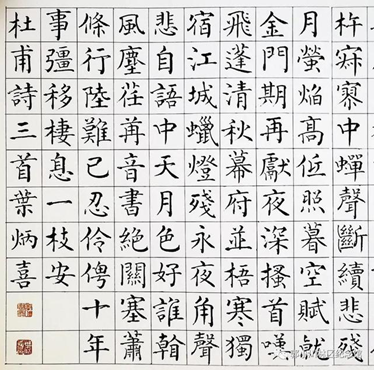 杵寂寥中蟬聲斷續悲殘
月螢焰高低照暮空賦就
金門期再獻夜深搔首嘆
飛蓬清秋幕府並梧寒獨
宿江城蠟燈殘永夜角聲
悲自語中天月色好誰翰
風塵荏苒音書絕關塞蕭
條行陸難已忍伶俜十年
事彊移棲息一枝安
杜甫詩三首葉炳喜